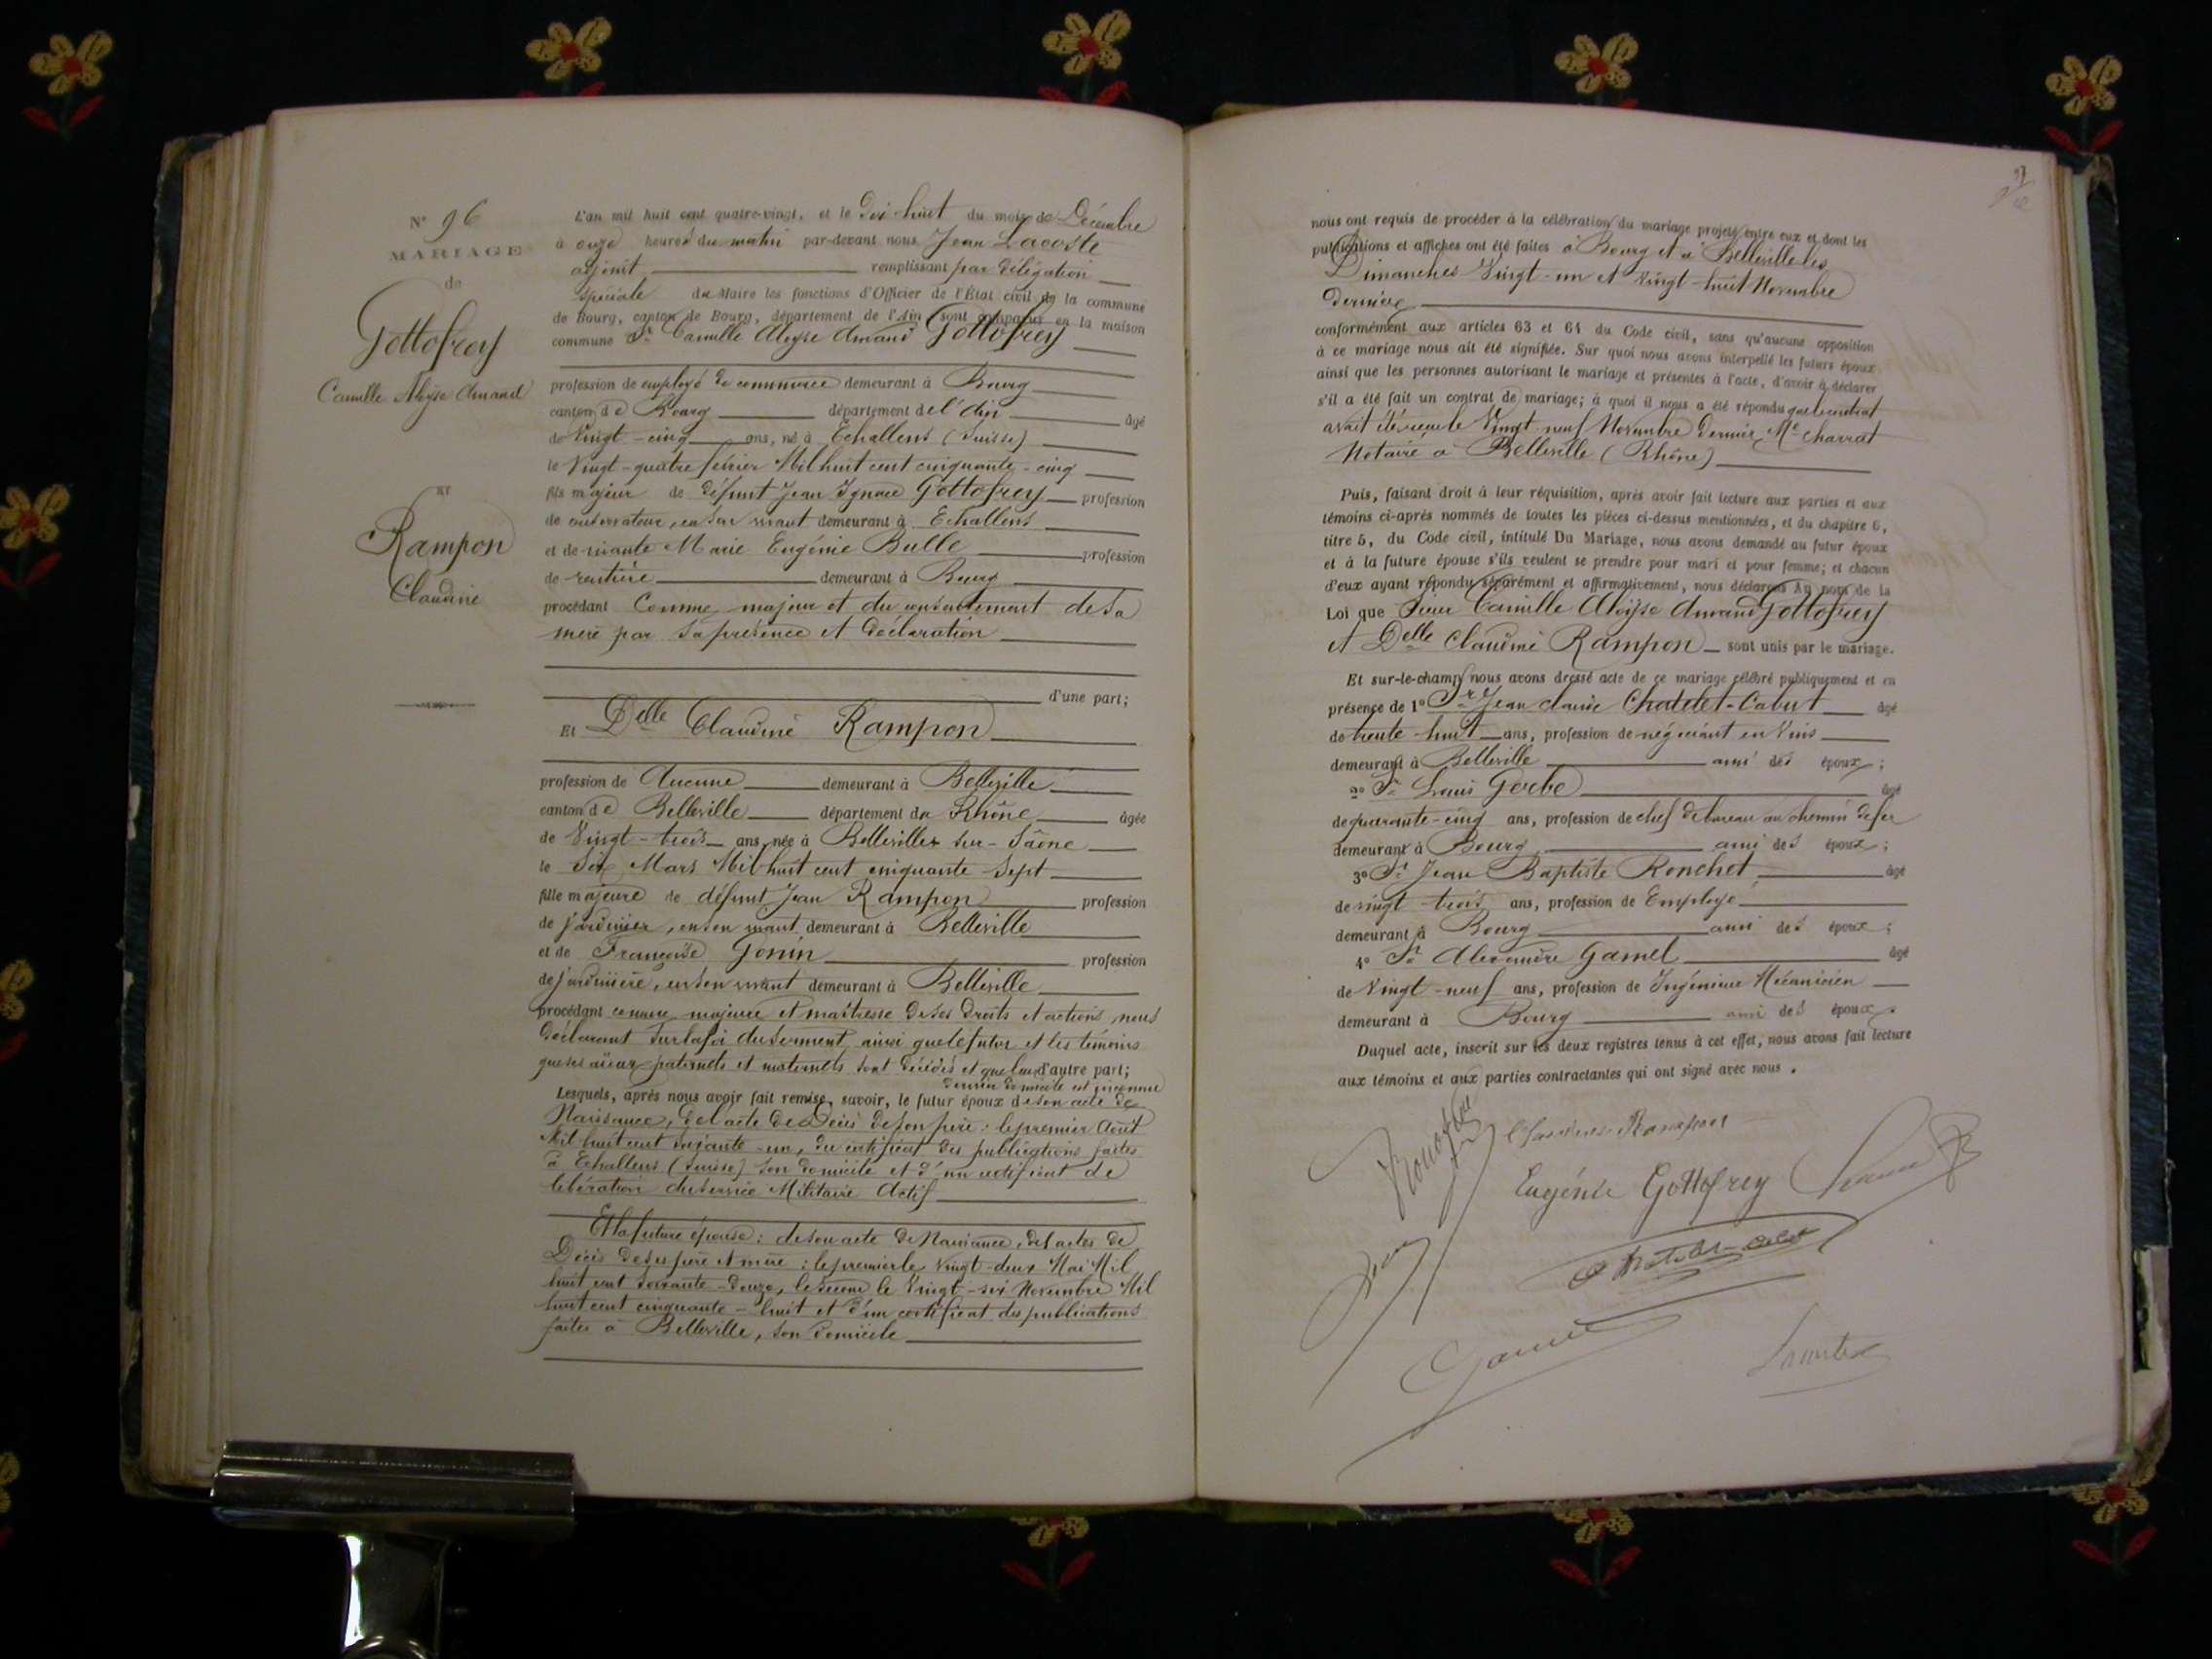 N° 96
MARIAGE
de
Gottofrey
Camille Aloyse Amand
ET
Rampon
Claudine
L'an mil huit cent quatre-vingt, et le dix-huit du mois de Décembre
à onze heures du matin par-devant nous Jean Lacoste
adjoint remplissant par délégation
spéciale du Maire les fonctions d'Officier de l'État civil de la commune
de Bourg, canton de Bourg, département de l'Ain, sont comparus en la maison
commune Sr Camille Aloyse Amand Gottofrey
profession de employé de commerce demeurant à Bourg
canton de Bourg département de l'Ain âgé
de Vingt-cinq ans, né à Echallens (Suisse)
le Vingt-quatre février Mil huit cent cinquante-cinq
fils majeur de défunt Jean Ignace Gottofrey profession
de en son vivant demeurant à Echallens
et de vivante Marie Eugénie Bulle profession
de rentière demeurant à Bourg
procédant Comme majeur et du consentement de sa
mère par sa présence et déclaration
d'une part;
Et Delle Claudine Rampon
profession de Aucune demeurant à Belleville
canton de Belleville département du Rhône âgée
de Vingt-trois ans, née à Belleville sur-Saône
le Six Mars Mil huit cent cinquante-sept
fille majeure de défunt Jean Rampon profession
de Jardinier, en son vivant demeurant à Belleville
et de Françoise Gonin profession
de Jardinière, en son vivant demeurant à Belleville
procédant comme majeure et maîtresse de ses droits et actions, nous
déclarant sur la foi du serment, ainsi que le futur et les témoins
que ses aïeux paternels et maternels sont décédés et que leur d'autre part;
dernier domicile est inconnu
Lesquels, après nous avoir fait remise, savoir, le futur époux de son acte de
Naissance, de l'acte de Décès de son père: le premier Août
Mil huit cent soixante-un, du certificat des publications faites
à Echallens (Suisse) son domicile et d'un certificat de
libération du service Militaire Actif
Et la future épouse: de son acte de Naissance, des actes de
Décès de ses père et mère: le premier le Vingt-deux Mai Mil
huit cent soixante-douze, le second le Vingt-six Novembre Mil
huit cent cinquante-huit et d'un certificat des publications
faites à Belleville, son domicile
nous ont requis de procéder à la célébration du mariage projeté entre eux et dont les
publications et affiches ont été faites à Bourg et à Belleville les
Dimanches Vingt-un et Vingt-huit Novembre
dernier
conformément aux articles 63 et 64 du Code civil, sans qu'aucune opposition
à ce mariage nous ait été signifiée. Sur quoi nous avons interpellé les futurs époux
ainsi que les personnes autorisant le mariage et présentes à l'acte, d'avoir à déclarer
s'il a été fait un contrat de mariage; à quoi il nous a été répondu que le contrat
avait été reçu le Vingt neuf Novembre dernier Me Charrat
Notaire à Belleville (Rhône)
Puis, faisant droit à leur réquisition, après avoir fait lecture aux parties et aux
témoins ci-après nommés de toutes les pièces ci-dessus mentionnées, et du chapitre 6,
titre 5, du Code civil, intitulé Du Mariage, nous avons demandé au futur époux
et à la future épouse s'ils veulent se prendre pour mari et pour femme; et chacun
d'eux ayant répondu séparément et affirmativement, nous déclarons Au nom de la
Loi que Sieur Camille Aloÿse Amand Gottofrey
et Delle Claudine Rampon sont unis par le mariage.
Et sur-le-champ nous avons dressé acte de ce mariage célébré publiquement et en
présence de 1° Sr Jean Claude Chatelet-Cabut âgé
de trente-huit ans, profession de négociant en Vins
demeurant à Belleville ami des époux;
2° Sr Louis Gerbe âgé
de quarante-cinq ans, profession de chef de bureau au chemin de fer
demeurant à Bourg ami des époux;
3° Sr Jean Baptiste Ronchet âgé
de vingt-trois ans, profession de Employé
demeurant à Bourg ami des époux;
4° Sr Alexandre Gamel âgé
de Vingt-neuf ans, profession de Ingénieur Mécanicien
demeurant à Bourg ami des époux.
Duquel acte, inscrit sur les deux registres tenus à cet effet, nous avons fait lecture
aux témoins et aux parties contractantes qui ont signé avec nous.
Claudine Rampon
Eugénie Gottofrey
Chatelet-Cabut
Lacoste